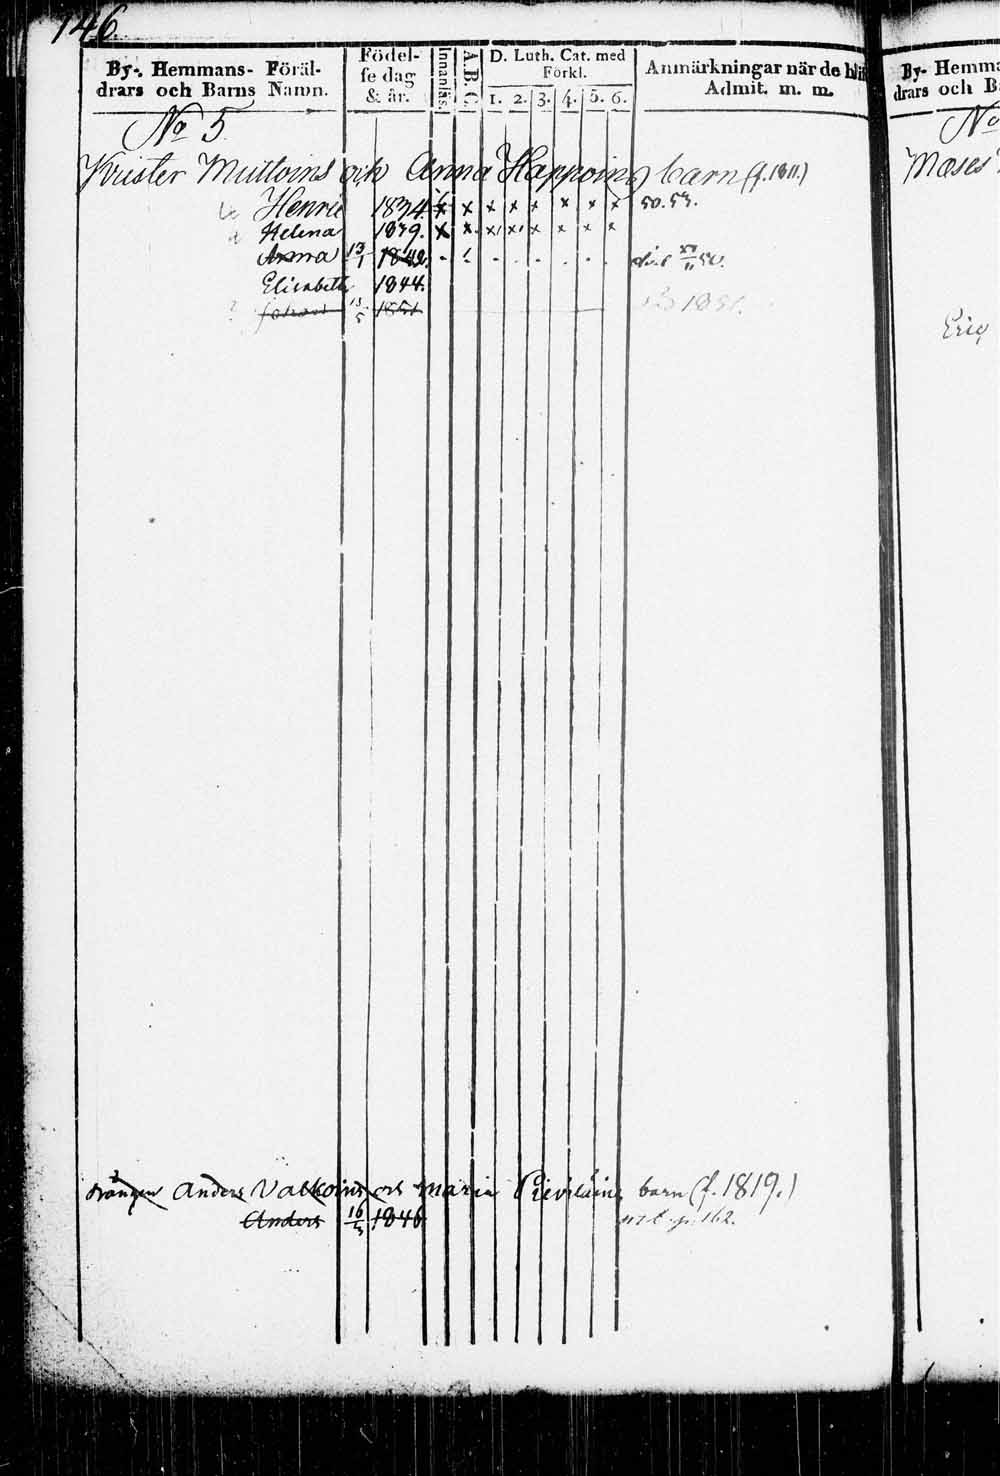 146.
By-, Hemmans- Föräl-
drars och Barns Namn.
Födel-
se dag
& år.
Innanläs.
A.B.C.
D. Luth. Cat. med
Förkl.
1. 2. 3. 4. 5. 6.
Anmärkningar när de
Admit. m. m.
No 5
Krister Muttoins och Anna Happoins barn (f. 1811.)
Henric 1834. x x x x x x x x 50. 53.
Helena 1839. x x x x x x x x
Anna 13/1 1842.
Elisabeth 1844.
Johan 13/5 1851
drängen Anders Valkoins och Maria barn (f. 1819.)
Anders 16/3 1846 p. 162.
By- Hemma
drars och Ba
No
Moses
Eric